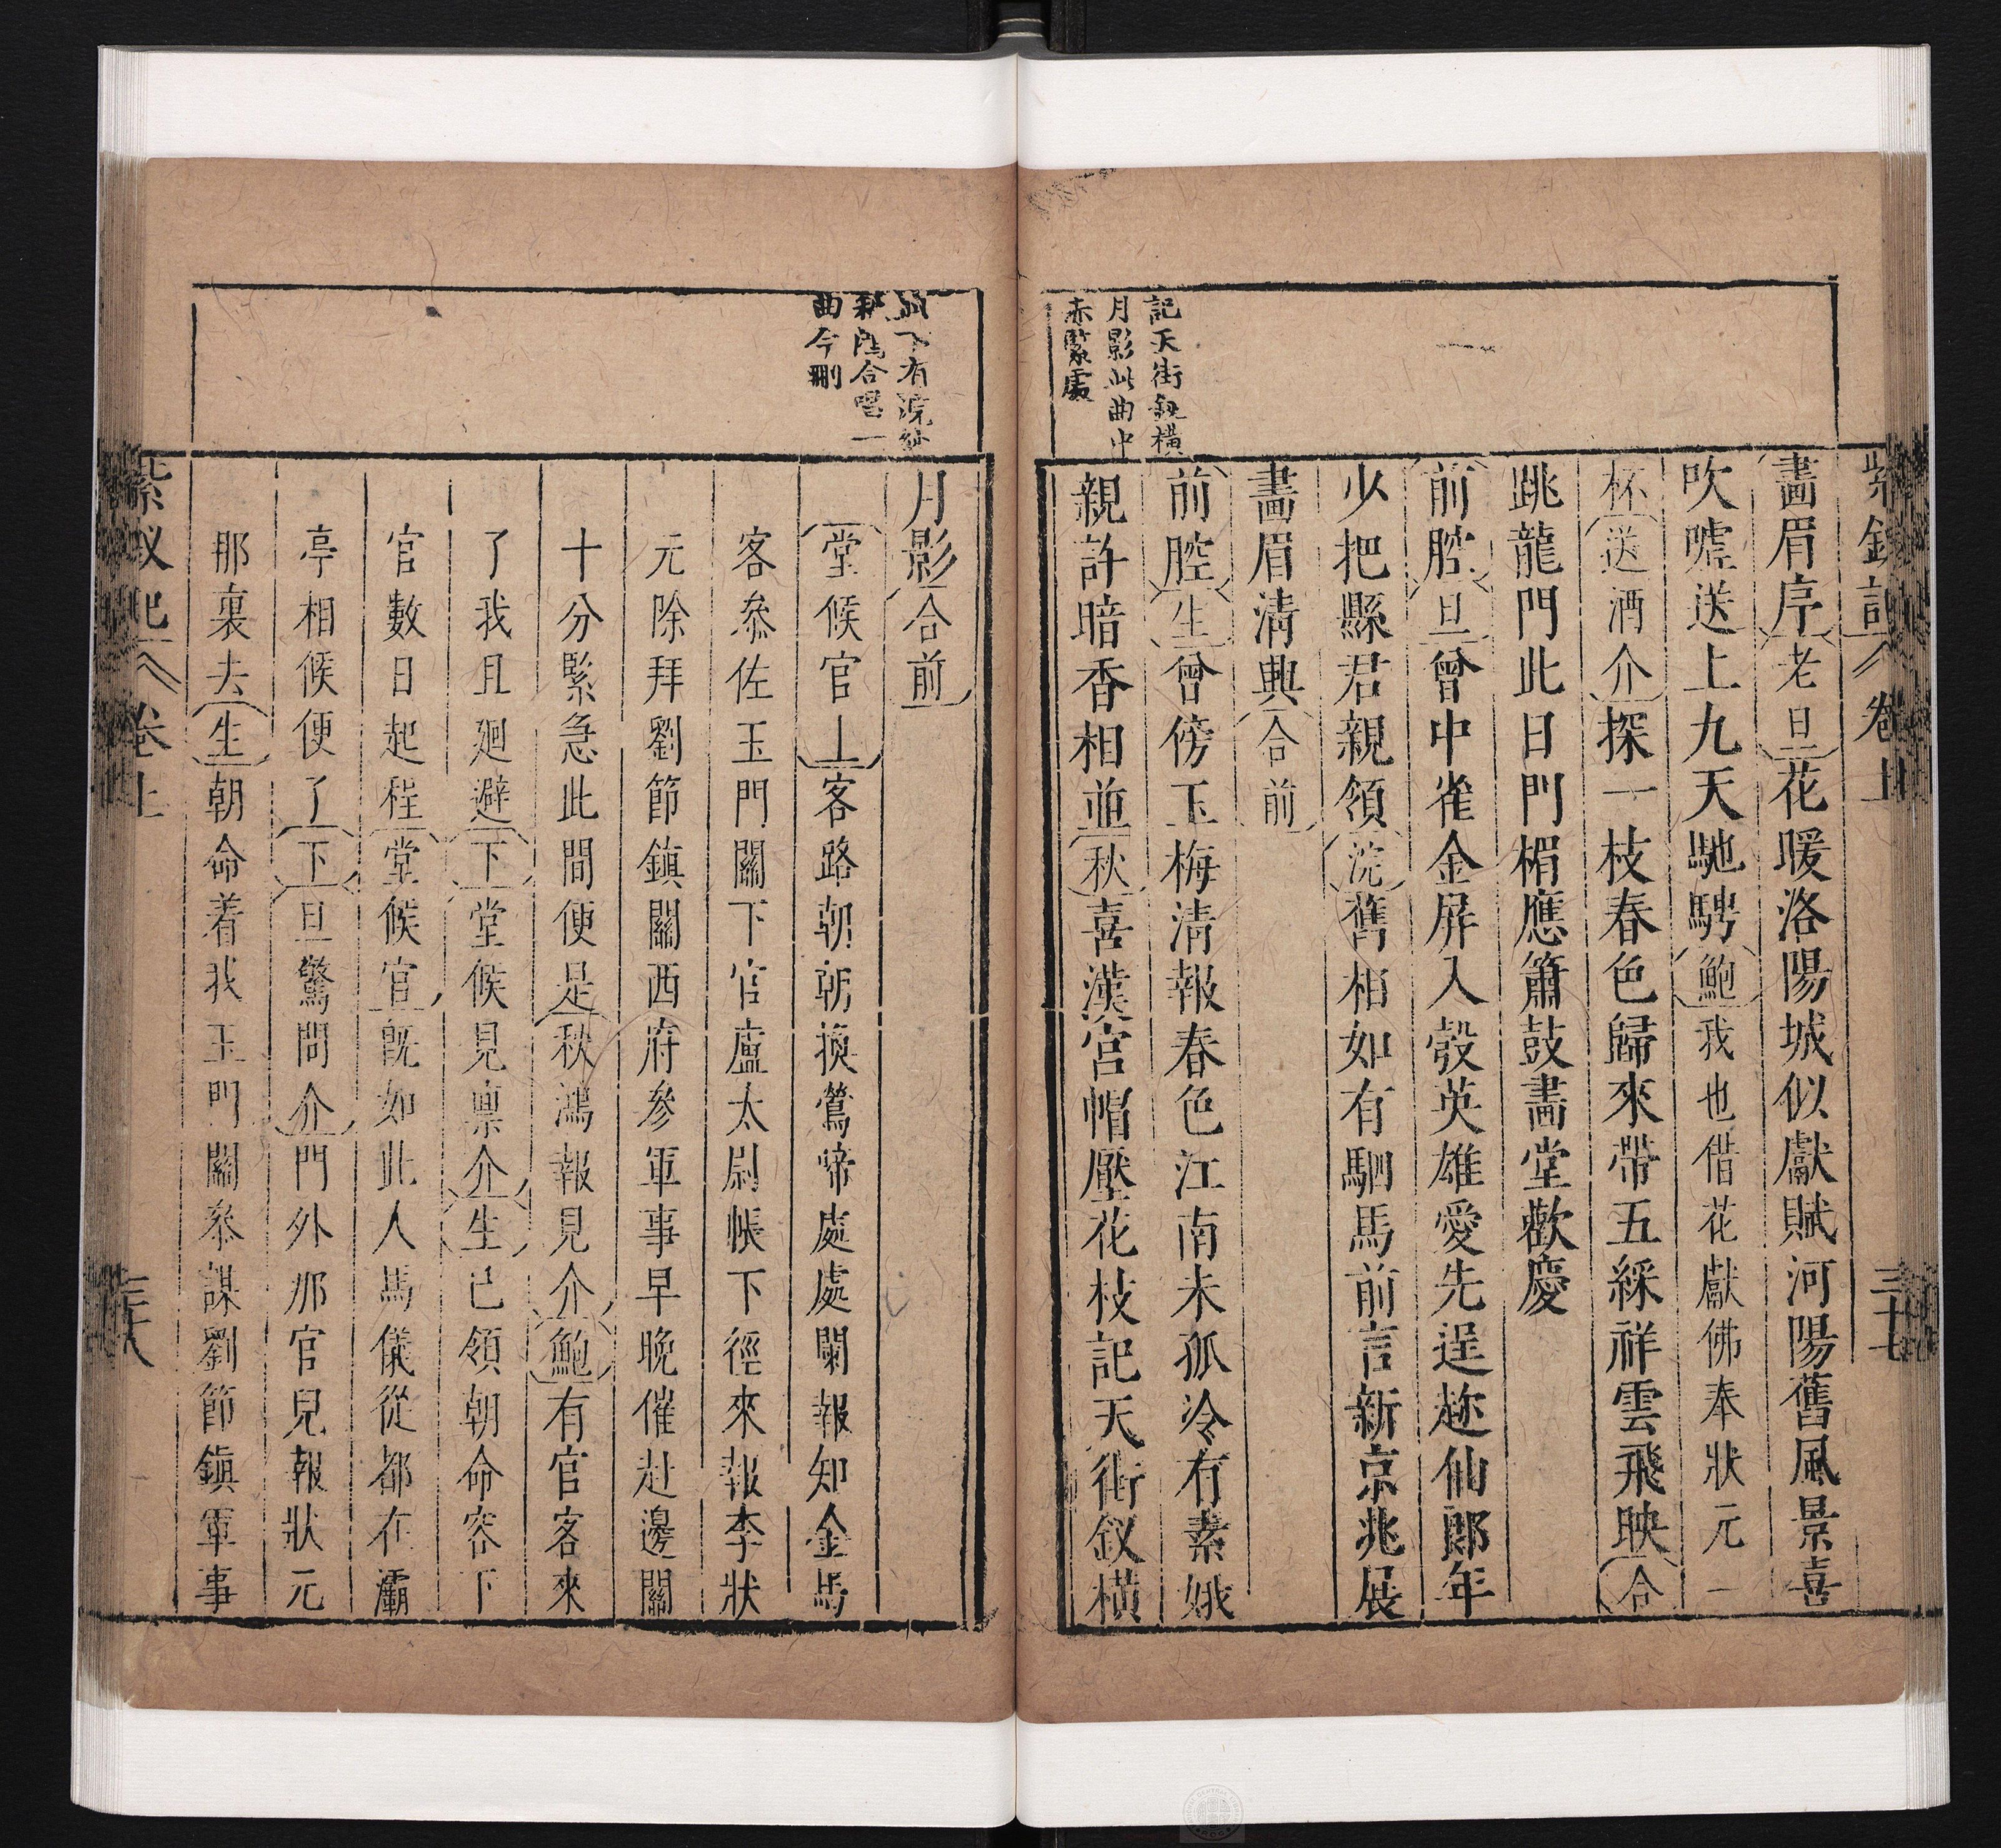 紫釵記 卷上 三十七
畫眉序老旦花暖洛陽城似獻賦河陽舊風景喜
吹噓送上九天馳騁鮑我也借花獻佛奉狀元一
杯送酒介探一枝春色歸來帶五綵祥雲飛映合
跳龍門此日門楣應簫鼓畫堂歡慶
前腔旦曾中雀金屏入彀英雄愛先逞趂仙郎年
少把縣君親領浣舊相如有駟馬前言新京兆展
畫眉清興合前
前腔生曾傍玉梅清報春色江南未孤冷有素娥
親許暗香相並秋喜漢宮帽壓花枝記天街釵橫
記天街釵橫
月影此曲中
赤緊處
月影合前
堂候官上客路朝朝換鶯啼處處闌報知金馬
客叅佐玉門關下官盧太尉帳下徑來報李狀
元除拜劉節鎮關西府參軍事早晚催赴邊關
十分緊急此間便是秋鴻報見介鮑有官客來
了我且廻避下堂候見稟介生已領朝命容下
官數日起程堂候官旣如此人馬儀從都在灞
亭相候便了下旦驚問介門外那官兒報狀元
那裏去生朝命着我玉門關叅謀劉節鎮軍事
此下有浣紗
秋鴻合唱一
曲今刪
紫釵記 卷上 三十八